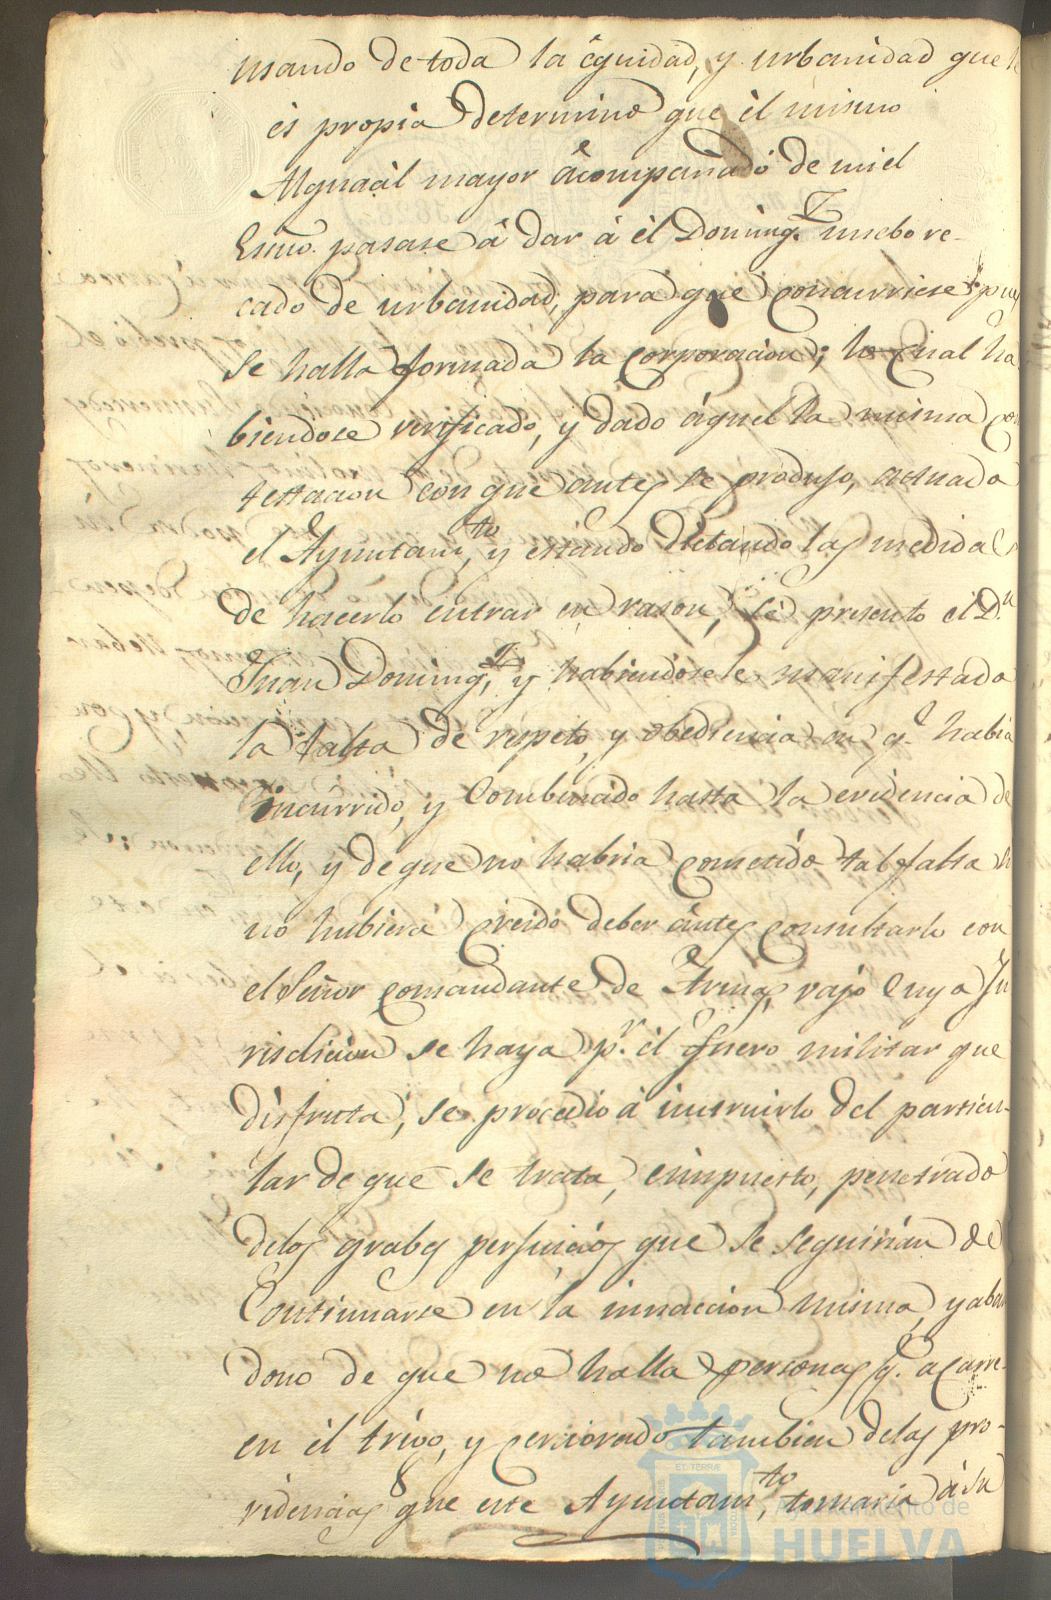 usando de toda la êquidad, y urbanidad que le
és propia determino que él mismo
Alguacil mayor âcompanado de mi el
Essno. pasase â dar á él Doming.z nuebo re-
cado de urbanidad, para que concurriese pues
se halla formada la corporacion; lo cual ha
biendose verificado, y dado áquel la misma con
testacion con que antes se produjo, actuado
el Ayuntam.to, y estando dictando las medidas
de hacerlo entrar en rason, se presento el D.n
Juan Doming.z, y habiendosele manifestado
la falta de respeto, y obediencia en q.e habia
incurrido, y combencido hasta la evidencia de
ello, y de que no habria cometido tal falta si
no hubiera creido deber ântes consultarlo con
el Señor comandante de Armas, vajo cuya Ju
risdicion se haya p.r él fuero militar que
disfruta, se procedio á instruirlo del particu-
lar de que se trata, é impuesto, penetrado
delos grabes perjuicios que se seguirián de
Continuarse en la innaccion misma, y aban
dono de que no halla personas q.e acarre-
en él trigo, y cerciorado tambien delas pro-
videncias que este Ayuntam.to, tomaria á su
Ayuntamiento de
HUELVA